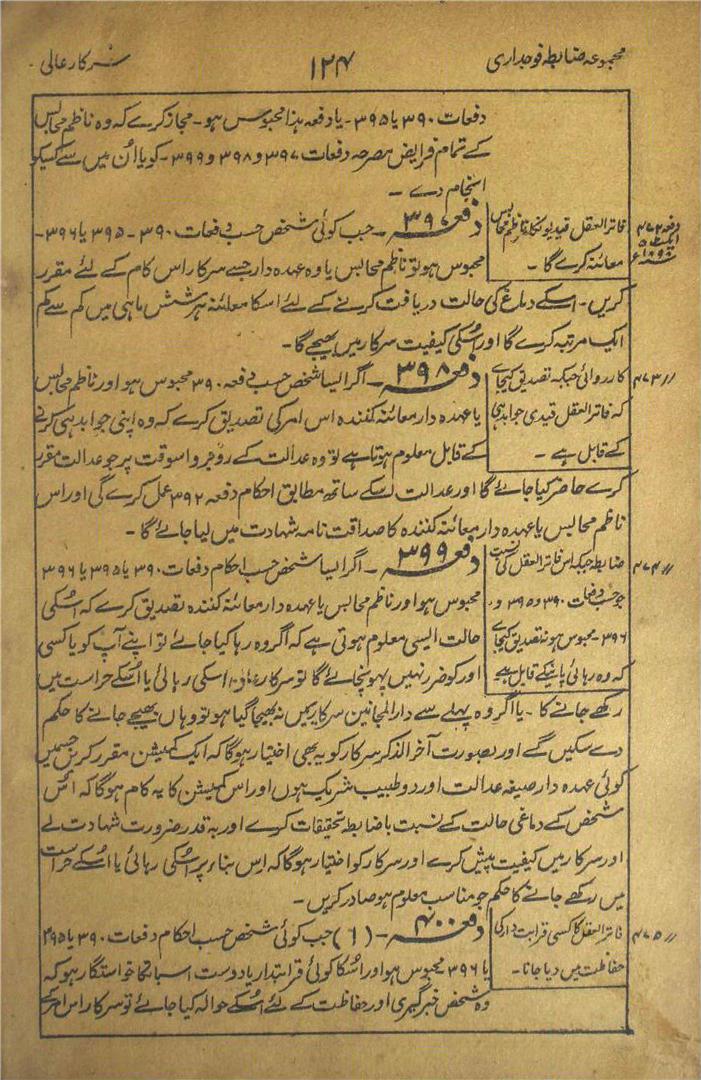 مجموعہ ضابطہ فوجداری
۱۲۴
سرکار عالی
دفعات ۳۹۰ یا ۳۹۵ - یا دفعہ ہذا محبوس ہو - مجاز کرے کہ وہ ناظم محابس
کے تمام فرایض مصرحہ دفعات ۳۹۷ و ۳۹۸ و ۳۹۹ - کو یا اُن میں سے کسیکو
انجام دے -
دفعہ ۴۷۲
ایکٹ ۵
۱۸۹۸ء
فاتر العقل قیدیونکا ناظم محابس
معائنہ کرے گا -
دفعہ ۳۹۷ - جب کوئی شخص حسب دفعات ۳۹۰ - ۳۹۵ یا ۳۹۶ -
محبوس ہو تو ناظم محابس یا وہ عہدہ دار جسے سرکار اس کام کے لئے مقرر
کریں - اسکے دماغ کی حالت دریافت کرنے کے لئے اسکا معائنہ ہر شش ماہی میں کم سے کم
ایک مرتبہ کرے گا اور اُسکی کیفیت سرکار میں بھیجے گا -
// ۴۷۳
کارروائی جبکہ تصدیق کیجاے
کہ فاتر العقل قیدی جوابدہی
کے قابل ہے -
دفعہ ۳۹۸ - اگر ایسا شخص حسب دفعہ ۳۹۰ محبوس ہو اور ناظم محابس
یا عہدہ دار معائنہ کنندہ اس امر کی تصدیق کرے کہ وہ اپنی جوابدہی کرنے
کے قابل معلوم ہوتا ہے تو وہ عدالت کے روبرو اسوقت پر جو عدالت مقرر
کرے حاضر کیا جائے گا اور عدالت اسکے ساتھ مطابق احکام دفعہ ۳۹۲ عمل کرے گی اور اس
ناظم محابس یا عہدہ دار معائنہ کنندہ کا صداقت نامہ شہادت میں لیا جائے گا -
// ۴۷۴
ضابطہ جبکہ اس فاتر العقل کی نسبت
جو حسب دفعات ۳۹۰ و ۳۹۵ و
۳۹۶ - محبوس ہو یہ تصدیق کیجاے
کہ وہ رہائی پانیکے قابل ہے
دفعہ ۳۹۹ - اگر ایسا شخص حسب احکام دفعات ۳۹۰ یا ۳۹۵ یا ۳۹۶
محبوس ہو اور ناظم محابس یا عہدہ دار معائنہ کنندہ تصدیق کرے کہ اُسکی
حالت ایسی معلوم ہوتی ہے کہ اگر وہ رہا کیا جائے تو اپنے آپ کو یا کسی
اور کو ضرر نہیں پہونچائے گا تو سرکار اسکی رہائی یا اُسکے حراست میں
رکھے جانے کا - یا اگر وہ پہلے سے دارالمجانین سرکار میں نہ بھیجا گیا ہو تو وہاں بھیجے جانے کا حکم
دے سکیں گے اور بصورت آخر الذکر سرکار کو یہ بھی اختیار ہوگا کہ ایک کمیشن مقرر کریں جسمیں
کوئی عہدہ دار صیغہ عدالت اور دو طبیب شریک ہوں اور اس کمیشن کا یہ کام ہوگا کہ اُس
شخص کے دماغی حالت کے نسبت باضابطہ تحقیقات کرے اور بہ قدر ضرورت شہادت لے
اور سرکار میں کیفیت پیش کرے اور سرکار کو اختیار ہوگا کہ اس بناء پر اُسکی رہائی یا اُسکے حراست
میں رکھے جانے کا حکم جو مناسب معلوم ہو صادر کریں -
// ۴۷۵
فاتر العقل کا کسی قرابت دار کی
حفاظت میں دیا جانا -
دفعہ ۴۰۰ - (۱) جب کوئی شخص حسب احکام دفعات ۳۹۰ یا ۳۹۵
یا ۳۹۶ محبوس ہو اور اُسکا کوئی قرابتدار یا دوست اسبات کا خواستگار ہو کہ
وہ شخص خبرگیری اور حفاظت کے لئے اُسکے حوالہ کیا جائے تو سرکار اس امر کے